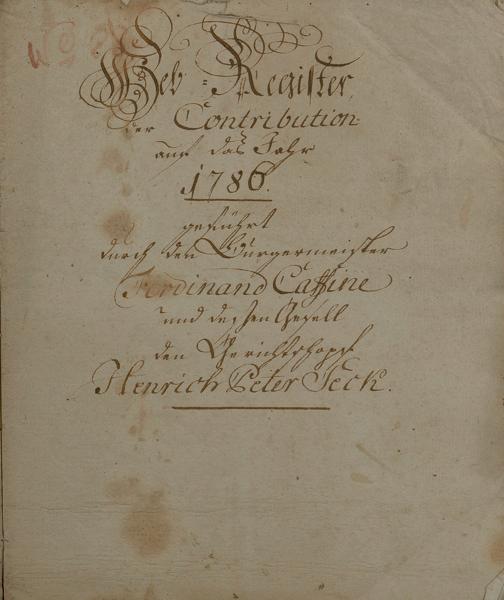 Heb=Register
der Contribution
auf das Jahr
1786.
geführt
durch den Burgermeister
Ferdinand Caffine
und dessen Gesell
den Gerichtschöpf
Henrich Peter Jeck.